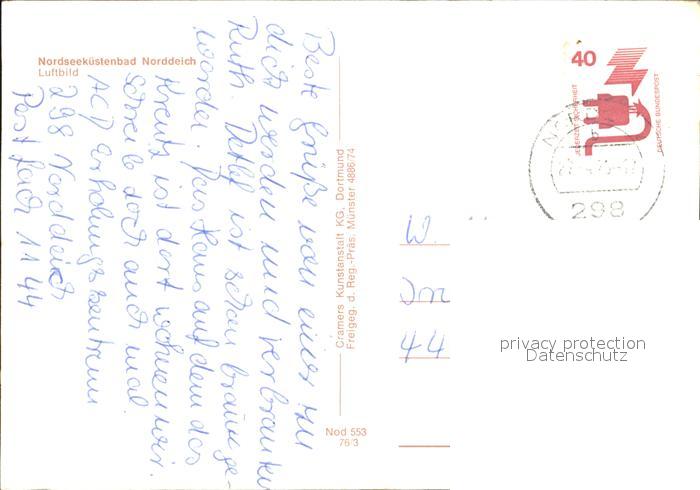 Nordseeküstenbad Norddeich
Luftbild
Beste Grüße von einer zu
dick werden und verbraukten
Ruth. Detlef ist schon braun ge-
worden. Das Haus auf dem das
Kreuz ist dort wohnen wir.
Schreib doch auch mal.
ACJ Erholungszentrum
298 Norddeich
Postfach 1144
Cramers Kunstanstalt KG, Dortmund
Freigeg. d. Reg.-Präs. Münster 4886/74
Nod 553
76/3
40
JEDERZEIT SICHERHEIT
DEUTSCHE BUNDESPOST
298
W.
44
privacy protection
Datenschutz